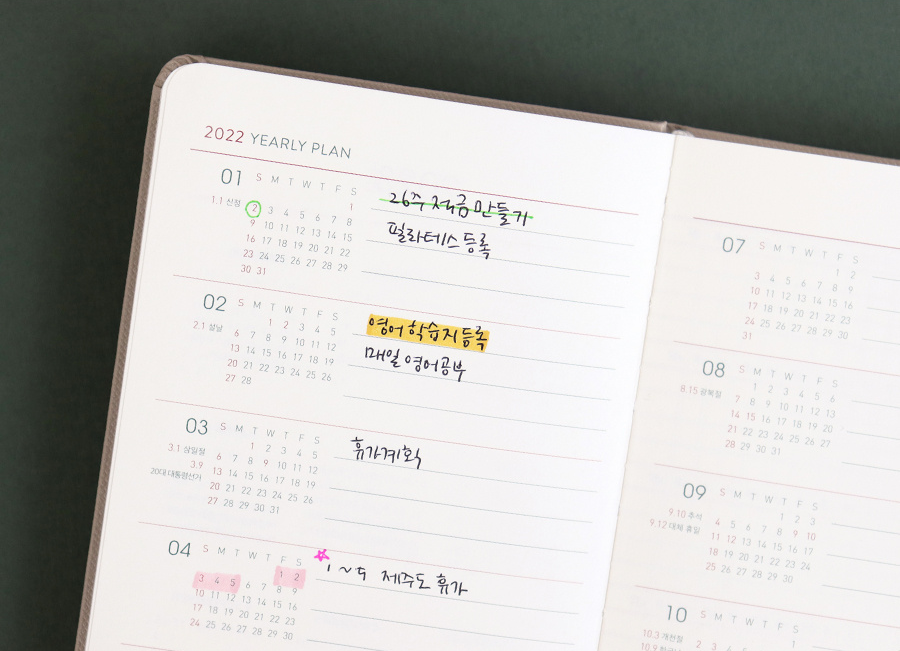 2022 YEARLY PLAN
01 S M T W T F S
1
1.1 신정 2 3 4 5 6 7 8
9 10 11 12 13 14 15
16 17 18 19 20 21 22
23 24 25 26 27 28 29
30 31
26주 적금 만들기
필라테스 등록
02 S M T W T F S
1 2 3 4 5
2.1 설날 6 7 8 9 10 11 12
13 14 15 16 17 18 19
20 21 22 23 24 25 26
27 28
영어 학습지 등록
매일 영어공부
03 S M T W T F S
1 2 3 4 5
3.1 삼일절 6 7 8 9 10 11 12
3.9 13 14 15 16 17 18 19
20대 대통령선거 20 21 22 23 24 25 26
27 28 29 30 31
휴가계획
04 S M T W T F S
1 2
3 4 5 6 7 8 9
10 11 12 13 14 15 16
17 18 19 20 21 22 23
24 25 26 27 28 29 30
1~5 제주도 휴가
07 S M T W T F S
1 2
3 4 5 6 7 8 9
10 11 12 13 14 15 16
17 18 19 20 21 22 23
24 25 26 27 28 29 30
31
08 S M T W T F S
1 2 3 4 5 6
8.15 광복절 7 8 9 10 11 12 13
14 15 16 17 18 19 20
21 22 23 24 25 26 27
28 29 30 31
09 S M T W T F S
1 2 3
9.10 추석 4 5 6 7 8 9 10
9.12 대체 휴일 11 12 13 14 15 16 17
18 19 20 21 22 23 24
25 26 27 28 29 30
10 S M T W T F S
1
10.3 개천절 2 3 4 5 6 7 8
10.9